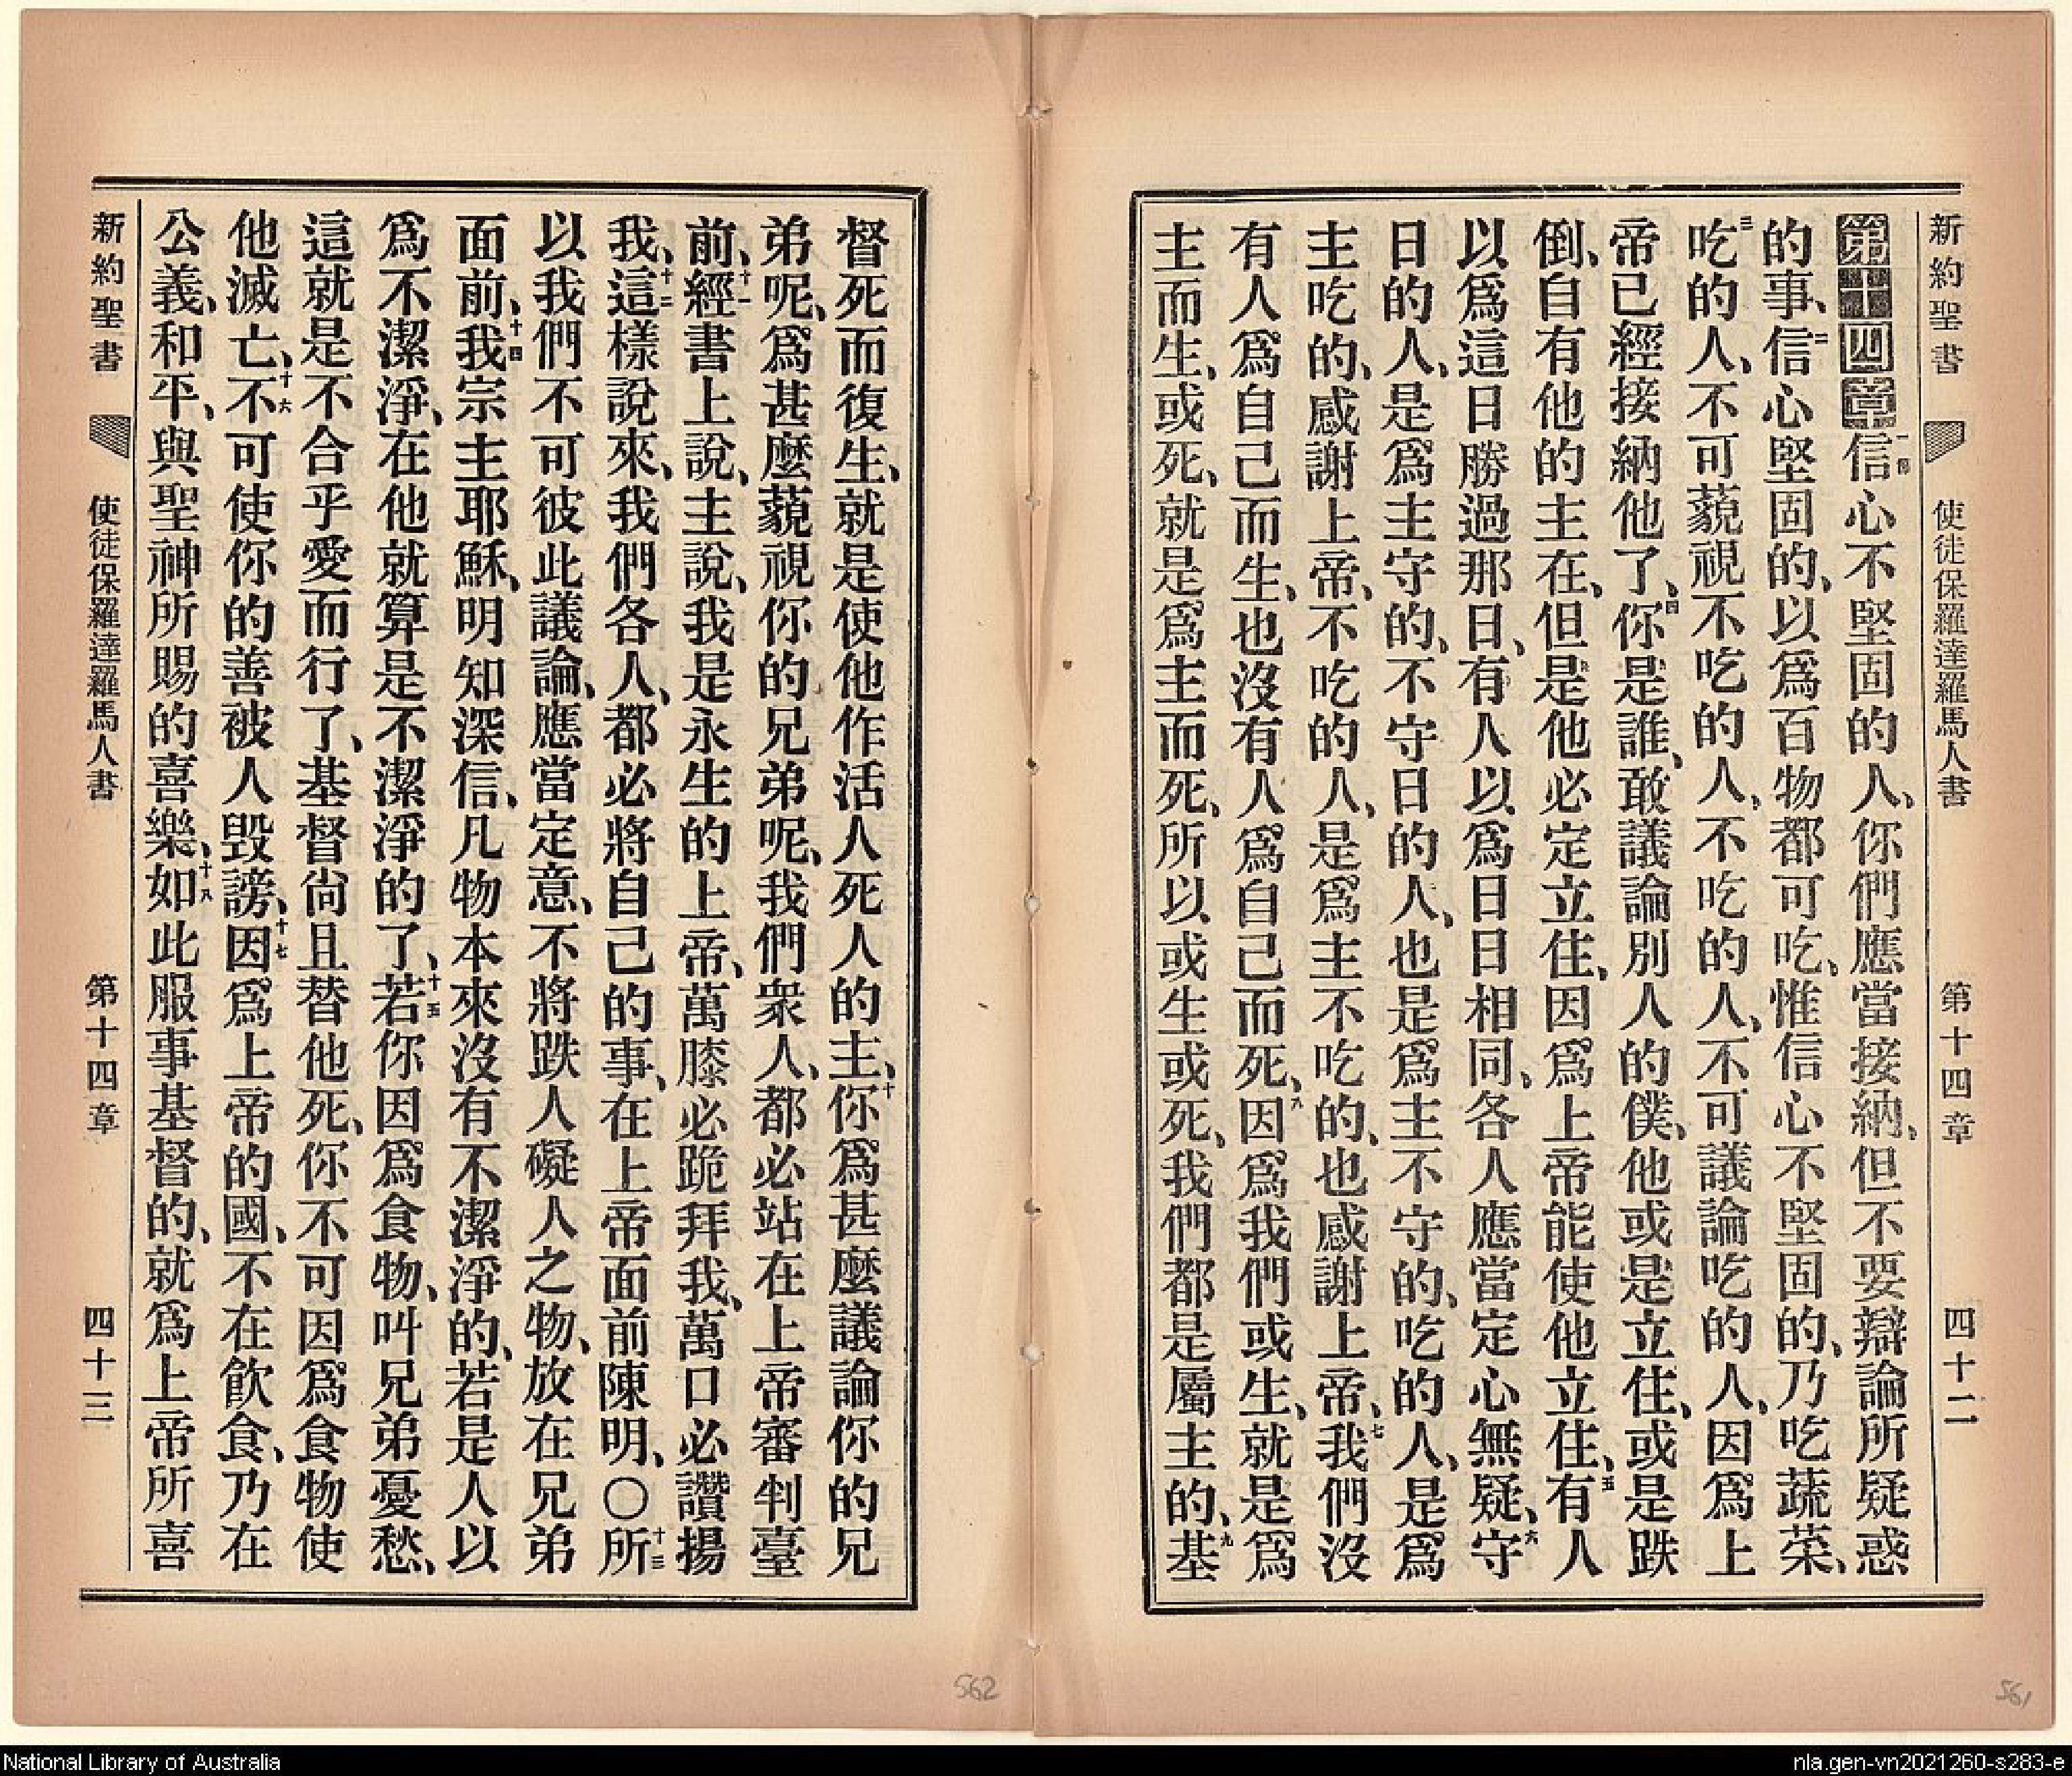 新約聖書 使徒保羅達羅馬人書 第十四章 四十二
第十四章一節信心不堅固的人、你們應當接納、但不要辯論所疑惑
的事、二信心堅固的、以爲百物都可吃、惟信心不堅固的、乃吃蔬菜、
三吃的人、不可藐視不吃的人、不吃的人、不可議論吃的人、因爲上
帝已經接納他了、四你是誰、敢議論別人的僕、他或是立住、或是跌
倒、自有他的主在、但是他必定立住、因爲上帝能使他立住、五有人
以爲這日勝過那日、有人以爲日日相同、各人應當定心無疑、六守
日的人、是爲主守的、不守日的人、也是爲主不守的、吃的人、是爲
主吃的、感謝上帝、不吃的人、是爲主不吃的、也感謝上帝、七我們沒
有人爲自己而生、也沒有人爲自己而死、八因爲我們或生、就是爲
主而生、或死、就是爲主而死、所以或生或死、我們都是屬主的、九基
督死而復生、就是使他作活人死人的主、十你爲甚麼議論你的兄
弟呢、爲甚麼藐視你的兄弟呢、我們衆人、都必站在上帝審判臺
前、十一經書上說、主說、我是永生的上帝、萬膝必跪拜我、萬口必讚揚
我、十二這樣說來、我們各人、都必將自己的事、在上帝面前陳明、〇十三所
以我們不可彼此議論、應當定意、不將跌人礙人之物、放在兄弟
面前、十四我宗主耶穌、明知深信、凡物本來沒有不潔淨的、若是人以
爲不潔淨、在他就算是不潔淨的了、十五若你因爲食物、叫兄弟憂愁、
這就是不合乎愛而行了、基督尚且替他死、你不可因爲食物使
他滅亡、十六不可使你的善被人毀謗、十七因爲上帝的國、不在飲食、乃在
公義、和平、與聖神所賜的喜樂、十八如此服事基督的、就爲上帝所喜
新約聖書 使徒保羅達羅馬人書 第十四章 四十三
562
561
National Library of Australia
nla.gen-vn2021260-s283-e